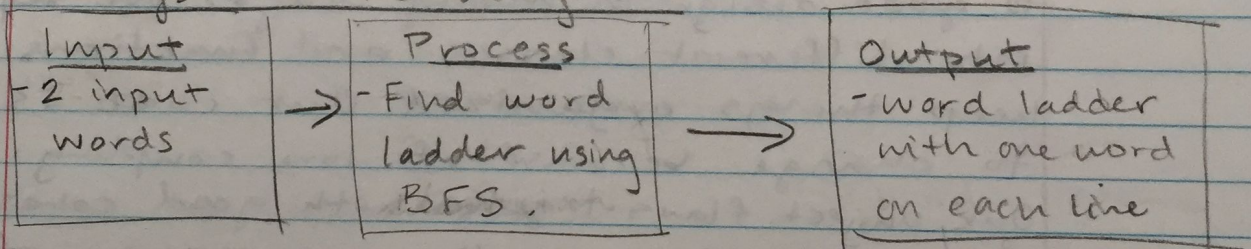 Input
- 2 input
words
Process
- Find word
ladder using
BFS.
Output
- word ladder
with one word
on each line